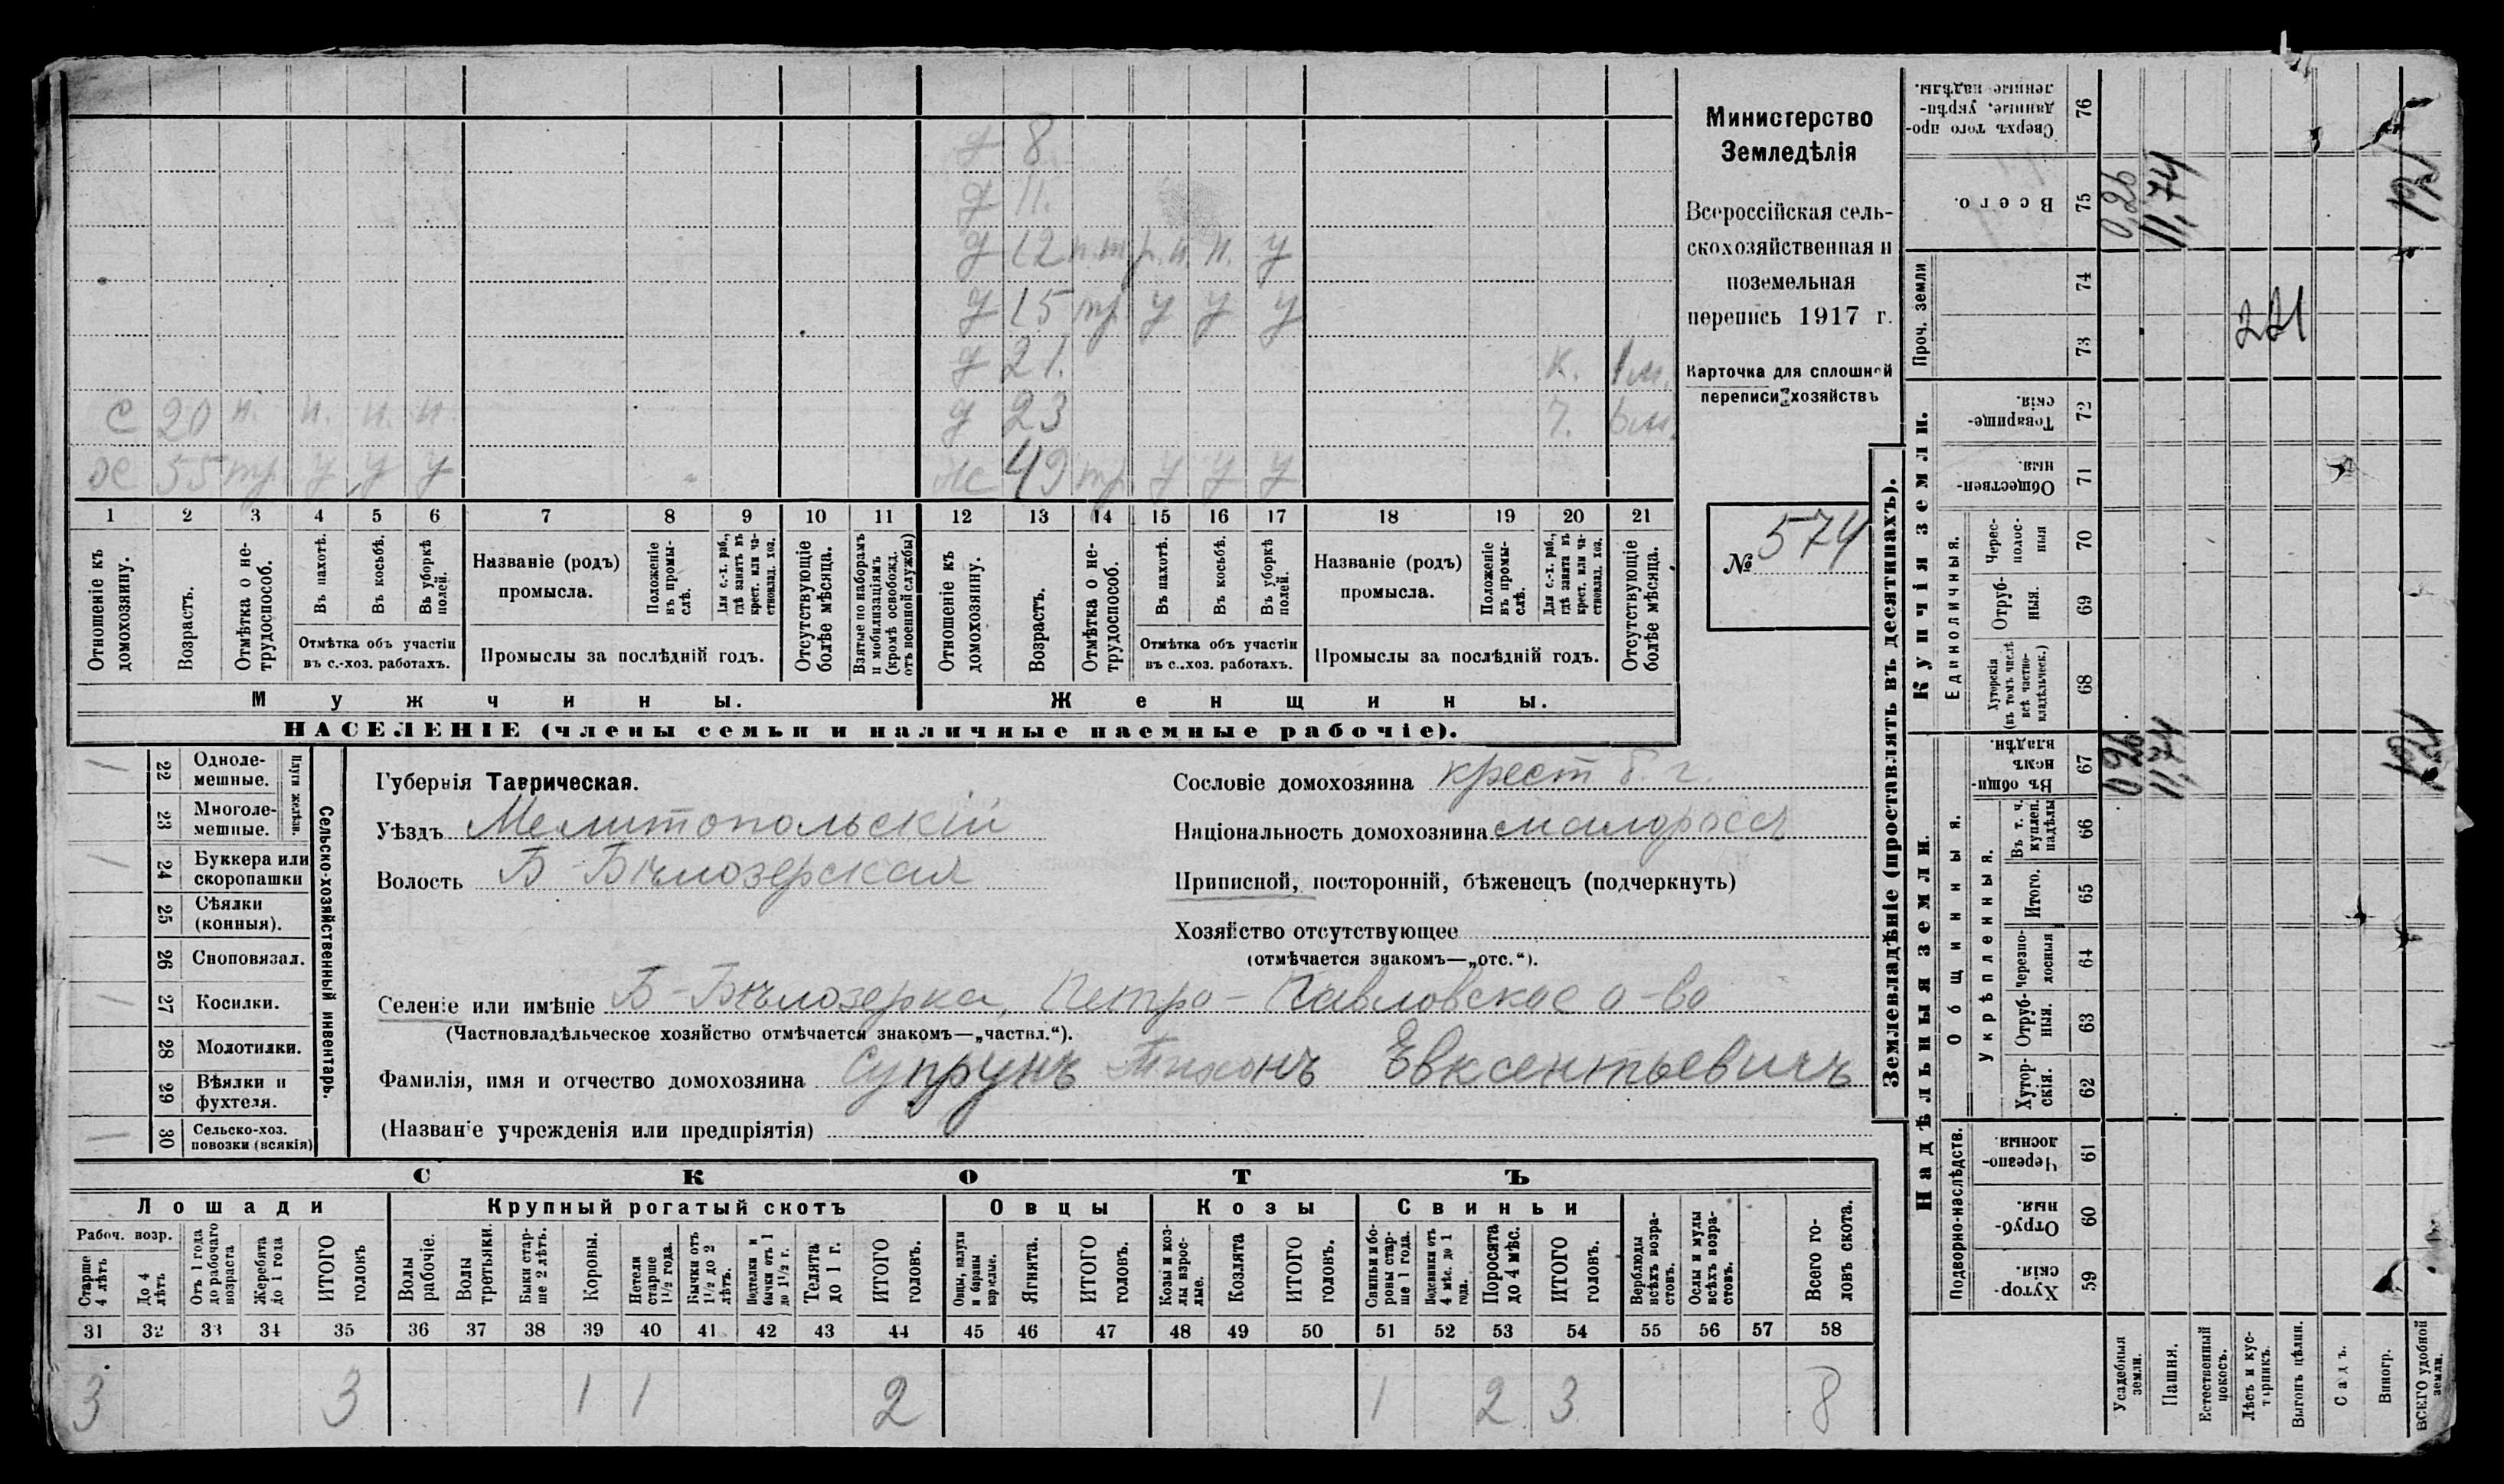 д 8
д 11.
д 12 п.т р.п. п. у
д 15 тр у у у
д 21. к. 1 м.
с 20 п. п. п. п. д 23 7. 6 м.
ж 55 тр у у у ж 49 тр. у у у
1 2 3 4 5 6 7 8 9 10 11 12 13 14 15 16 17 18 19 20 21
Отношеніе къ домохозяину.
Возрастъ.
Отмѣтка о не-трудоспособ.
Въ пахотѣ.
Въ косьбѣ.
Въ уборкѣ полей.
Отмѣтка объ участіи
въ с.-хоз. работахъ.
Названіе (родъ)
промысла.
Положеніе въ промы-слѣ.
Для с.-х. раб., гдѣ занятъ въ крест. или ча-стновлад. хоз.
Промыслы за послѣдній годъ.
Отсутствующіе болѣе мѣсяца.
Взятые по наборамъ и мобилизаціямъ (кромѣ освобожд. отъ военной службы)
Отношеніе къ домохозяину.
Возрастъ.
Отмѣтка о не-трудоспособ.
Въ пахотѣ.
Въ косьбѣ.
Въ уборкѣ полей.
Отмѣтка объ участіи
въ с.-хоз. работахъ.
Названіе (родъ)
промысла.
Положеніе въ промы-слѣ.
Для с.-х. раб., гдѣ занята въ крест. или ча-стновлад. хоз.
Промыслы за послѣдній годъ.
Отсутствующіе болѣе мѣсяца.
Мужчины.
Женщины.
НАСЕЛЕНІЕ (члены семьи и наличные наемные рабочіе).
Министерство
Земледѣлія
Всероссійская сель-
скохозяйственная и
поземельная
перепись 1917 г.
Карточка для сплошной
переписи хозяйствъ
№ 574
22 Одноле-мешные.
23 Многоле-мешные.
Плуги желѣзн.
24 Буккера или скоропашки
25 Сѣялки (конныя).
26 Сноповязал.
27 Косилки.
28 Молотилки.
29 Вѣялки и фухтеля.
30 Сельско-хоз. повозки (всякія)
Сельско-хозяйственный инвентарь.
Губернія Таврическая.
Уѣздъ Мелитопольскій
Волость Б-Бѣлозерская
Сословіе домохозяина крест б. г.
Національность домохозяина малоросс
Приписной, посторонній, бѣженецъ (подчеркнуть)
Хозяйство отсутствующее
(отмѣчается знакомъ—„отс.“).
Селеніе или имѣніе Б-Бѣлозерка, Петро-Павловское о-во
(Частновладѣльческое хозяйство отмѣчается знакомъ—„частвл.“).
Фамилія, имя и отчество домохозяина Супрунъ Тихонъ Евксентьевичъ
(Названіе учрежденія или предпріятія)
СКОТЪ
Лошади
Крупный рогатый скотъ
Овцы
Козы
Свиньи
Рабоч. возр.
Старше 4 лѣтъ
До 4 лѣтъ
Отъ 1 года до рабочаго возраста
Жеребята до 1 года
ИТОГО головъ
Волы рабочіе.
Волы третьяки.
Быки стар-ше 2 лѣтъ.
Коровы.
Нетели старше 1½ года.
Бычки отъ 1½ до 2 лѣтъ.
Подтелки и бычки отъ 1 до 1½ г.
Телята до 1 г.
ИТОГО головъ.
Овцы, валухи и бараны взрослые.
Ягнята.
ИТОГО головъ.
Козы и коз-лы взрос-лые.
Козлята
ИТОГО головъ.
Свиньи и бо-ровы стар-ше 1 года.
Подсвинки отъ 4 мѣс. до 1 года.
Поросята до 4 мѣс.
ИТОГО головъ.
Верблюды всѣхъ возра-стовъ.
Ослы и мулы всѣхъ возра-стовъ.
Всего го-ловъ скота.
31 32 33 34 35 36 37 38 39 40 41 42 43 44 45 46 47 48 49 50 51 52 53 54 55 56 57 58
3 3 1 1 2 1 2 3 8
Землевладѣніе (проставлять въ десятинахъ).
Надѣльныя земли.
Купчія земли.
Проч. земли
Подворно-наслѣдств.
Общинныя.
Укрѣпленныя.
Единоличныя.
Хутор-скія. 59
Отруб-ныя. 60
Черезпо-лосныя 61
Хутор-скія. 62
Отруб-ныя. 63
Черезпо-лосныя 64
Итого. 65
Въ т. ч. куплен. надѣлы 66
Въ общи-номъ владѣн. 67
Хуторскія (въ томъ числѣ всѣ частно-владѣльческ.) 68
Отруб-ныя. 69
Черес-полос-ныя 70
Обществен-ныя. 71
Товарище-скія. 72
73
74
Всего. 75
Сверхъ того про-данные, укрѣп-ленные надѣлы. 76
Усадебныя земли.
Пашня.
Естественный покосъ.
Лѣсъ и кус-тарникъ.
Выгонъ цѣлин.
Садъ.
Виногр.
ВСЕГО удобной земли.
0,26 11,74 12
0,26 11,74 12
221